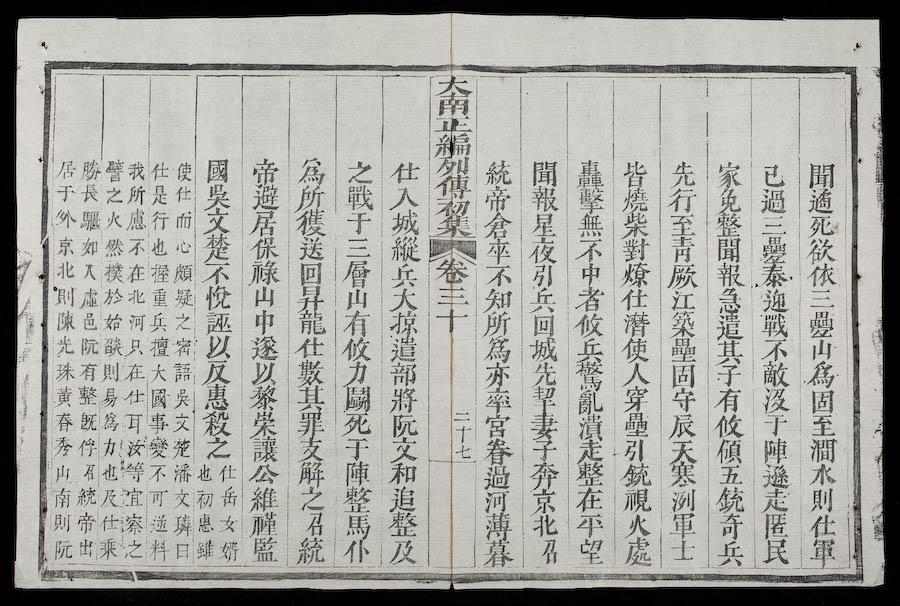 聞遹死欲依三疊山為固至澗水則仕軍
已過三疊泰迎戰不敵沒于陣遜走匿民
家免整聞報急遣其子有攸傾五銃奇兵
先行至青厥江築壘固守辰天寒洌軍士
皆燒柴對燎仕潛使人穿壘引銃視火處
轟擊無不中者攸兵驚亂潰走整在平望
聞報星夜引兵回城先挈妻子奔京北召
統帝倉卒不知所為亦率宮眷過河薄暮
大南正編列傳初集 卷三十
二十七
仕入城縱兵大掠遣部將阮文和追整及
之戰于三層山有攸力鬭死于陣整馬仆
為所獲送回昇龍仕數其罪支解之召統
帝避居保祿山中遂以黎崇讓公維𥛭監
國吳文楚不悅誣以反惠殺之
仕岳女婿
也初惠雖
使仕而心頗疑之密語吳文楚潘文璘曰
仕是行也握重兵擅大國事變不可逆料
我所慮不在北河只在仕耳汝等宜察之
譬之火然撲於始燄則易為力也及仕乘
勝長驅如入虛邑阮有整既俘召統帝出
居于外京北則陳光珠黃春秀山南則阮